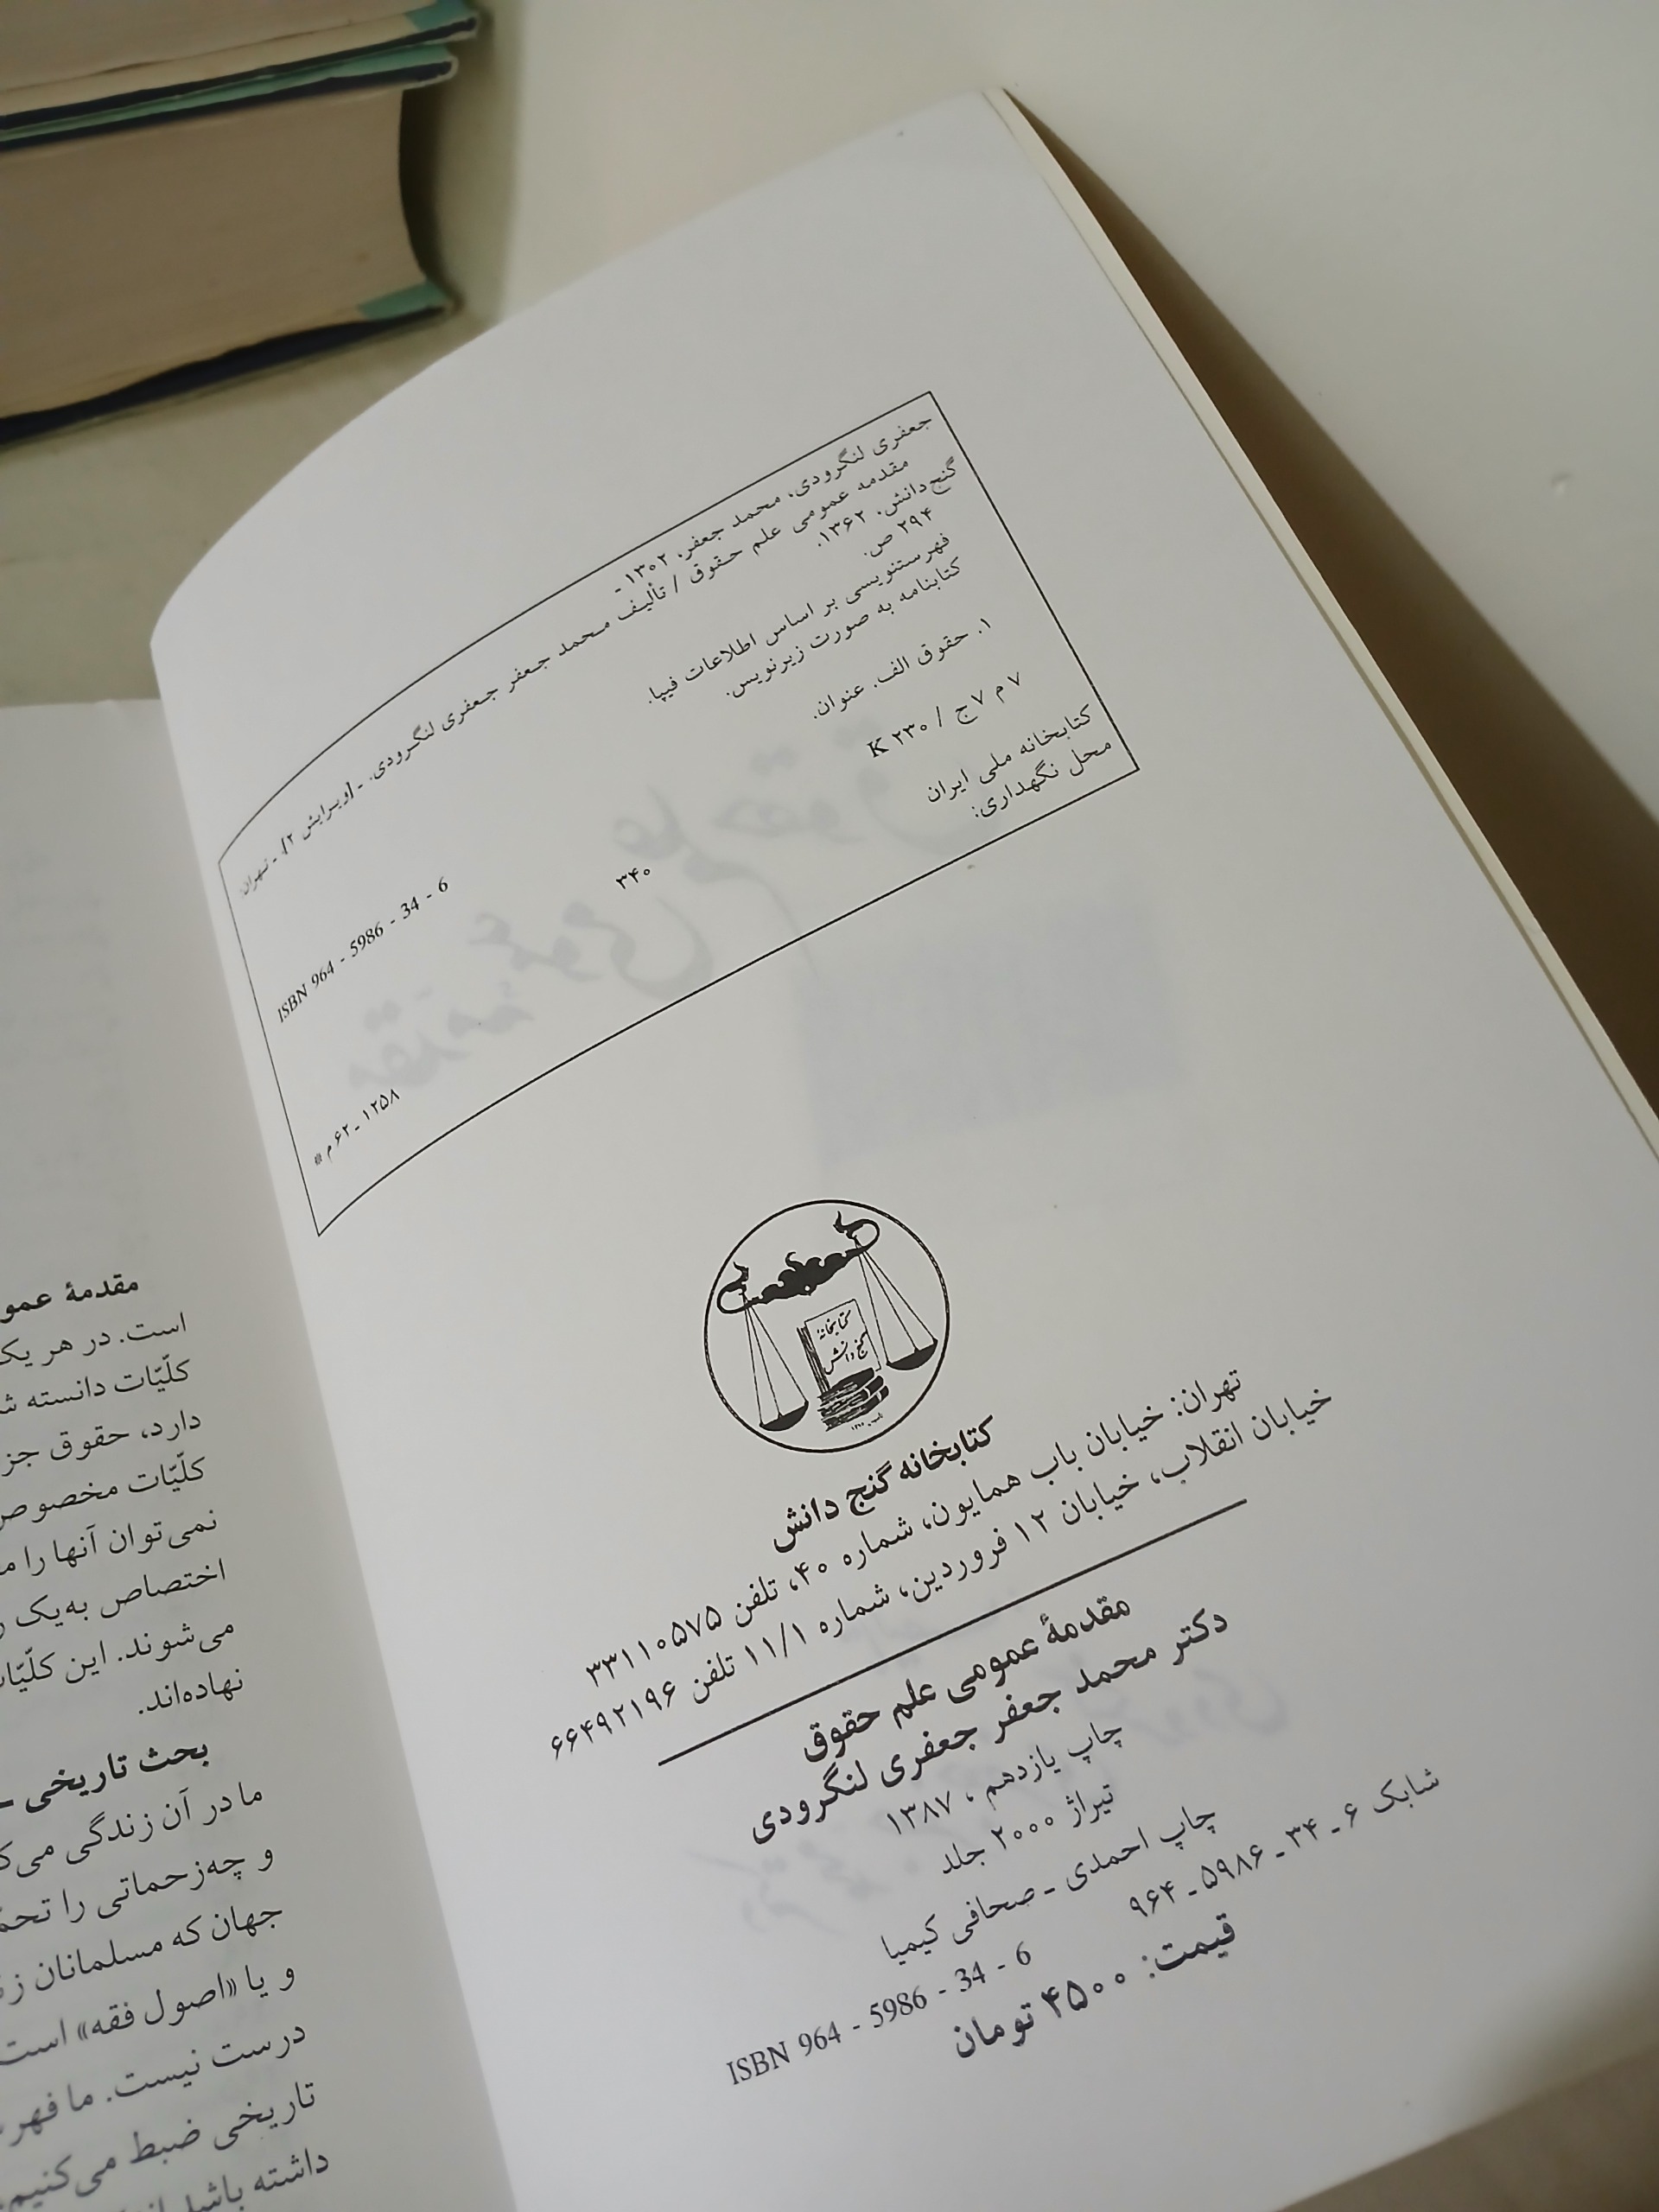 جعفری لنگرودی، محمد جعفر، ۱۳۰۲ـ
مقدمه عمومی علم حقوق / تألیف محمد جعفر جعفری لنگرودی. ـ [ویرایش ۲]. ـ تهران:
گنج‌دانش، ۱۳۶۲.
۲۹۴ ص.
ISBN 964 - 5986 - 34 - 6
فهرستنویسی بر اساس اطلاعات فیپا.
کتابنامه به صورت زیرنویس.
۱. حقوق الف. عنوان.
۷ م ۷ ج / ۲۳۰ K
۳۴۰
کتابخانه ملی ایران
۱۲۵۸ ـ ۶۲ م *
محل نگهداری:
کتابخانهٔ
گنج دانش
کتابخانه گنج دانش
تهران: خیابان باب همایون، شماره ۴۰، تلفن ۳۳۱۱۰۵۷۵
خیابان انقلاب، خیابان ۱۲ فروردین، شماره ۱۱/۱ تلفن ۶۶۴۹۲۱۹۶
مقدمهٔ عمومی علم حقوق
دکتر محمد جعفر جعفری لنگرودی
چاپ یازدهم ، ۱۳۸۷
تیراژ ۲۰۰۰ جلد
چاپ احمدی ـ صحافی کیمیا
شابک ۶ ـ ۳۴ ـ ۵۹۸۶ ـ ۹۶۴
ISBN 964 - 5986 - 34 - 6
قیمت: ۴۵۰۰ تومان
مقدمهٔ عمو
است. در هر یک
کلّیّات دانسته ش
دارد، حقوق جز
کلّیّات مخصوص
نمی‌توان آنها را م
اختصاص به‌یک
می‌شوند. این کلّیّات
نهاده‌اند.
بحث تاریخی ـ
ما در آن زندگی می‌ک
و چه‌زحماتی را تحمّ
جهان که مسلمانان ز
و یا «اصول فقه» است
درست نیست. ما فهر
تاریخی ضبط می‌کنیم
داشته باشد